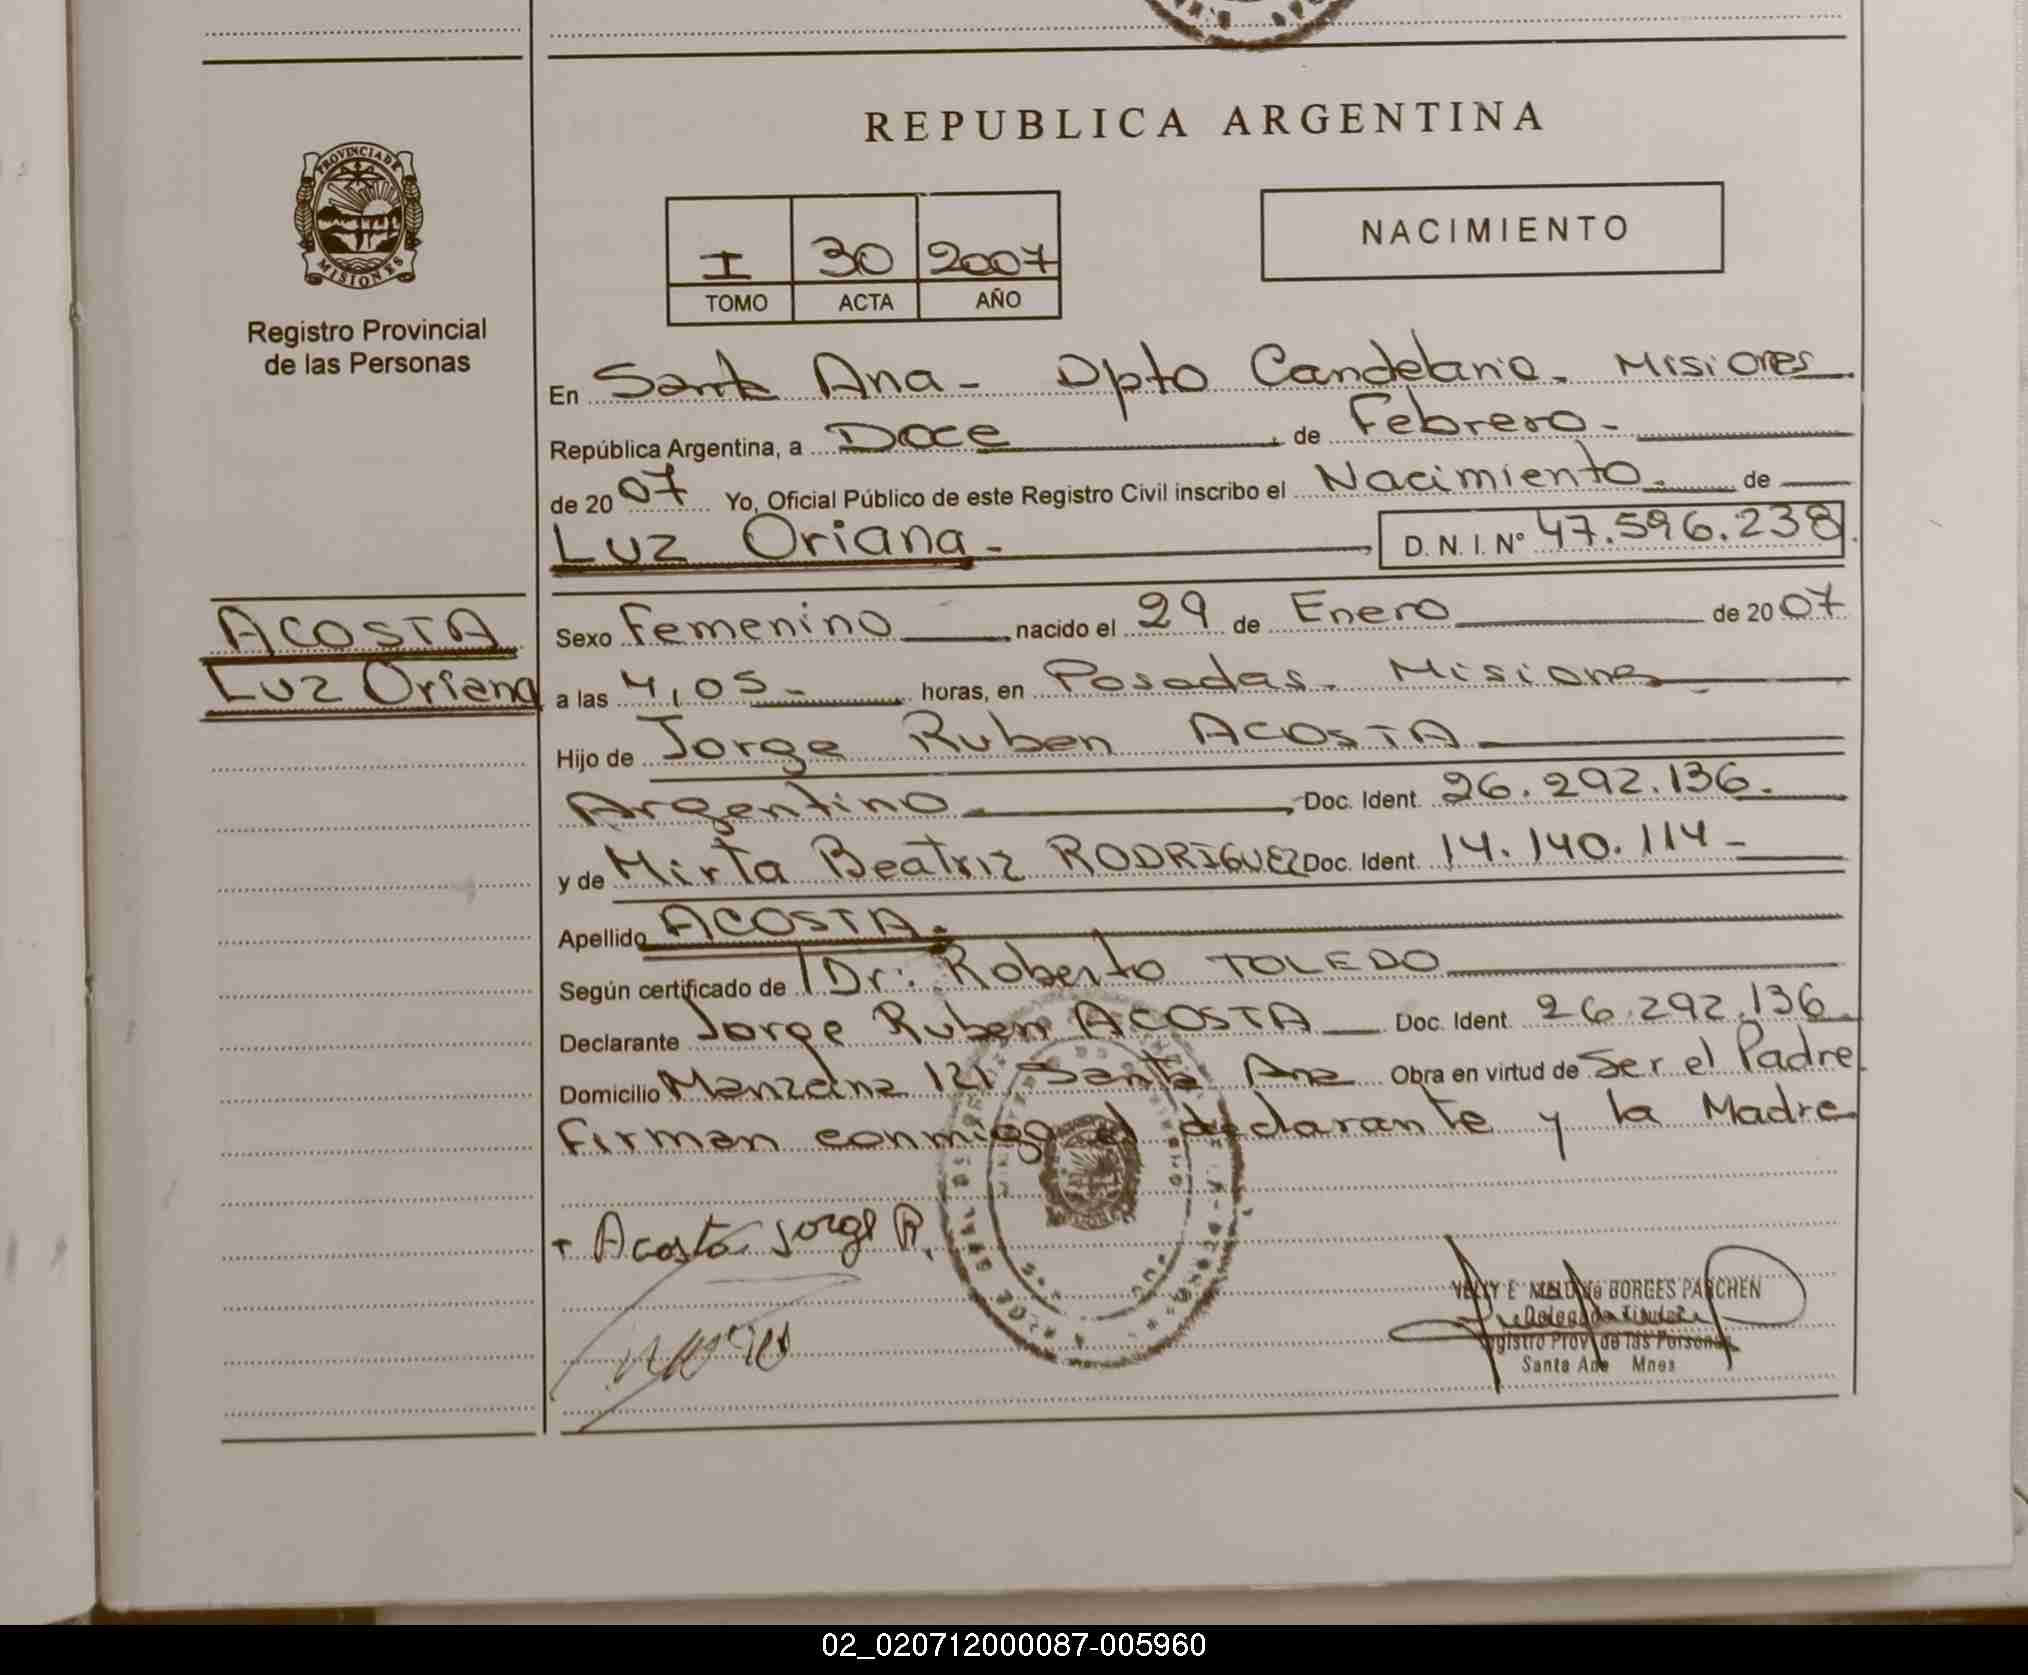 REPUBLICA ARGENTINA
PROVINCIA DE
MISIONES
Registro Provincial
de las Personas
NACIMIENTO
I 30 2007
TOMO ACTA AÑO
En Santa Ana - Dpto Candelaria. Misiones
República Argentina, a Doce de Febrero -
de 2007 Yo, Oficial Público de este Registro Civil inscribo el Nacimiento. de
Luz Oriana - D. N. I. N° 47.596.238
ACOSTA
Luz Oriana
Sexo Femenino nacido el 29 de Enero de 2007
a las 4,05 - horas, en Posadas. Misiones
Hijo de Jorge Ruben ACOSTA
Argentino Doc. Ident. 26.292.136.
y de Mirta Beatriz RODRIGUEZ Doc. Ident. 14.140.114 -
Apellido ACOSTA.
Según certificado de Dr: Roberto TOLEDO
Declarante Jorge Ruben ACOSTA Doc. Ident. 26.292.136.
Domicilio Manzana 121 Santa Ana Obra en virtud de Ser el Padre
Firman conmigo el declarante y la Madre
Acosta Jorge R.
BORGES PARCHEN
Delegada Titular
Registro Prov de las Personas
Santa Ana Mnes
02_020712000087-005960